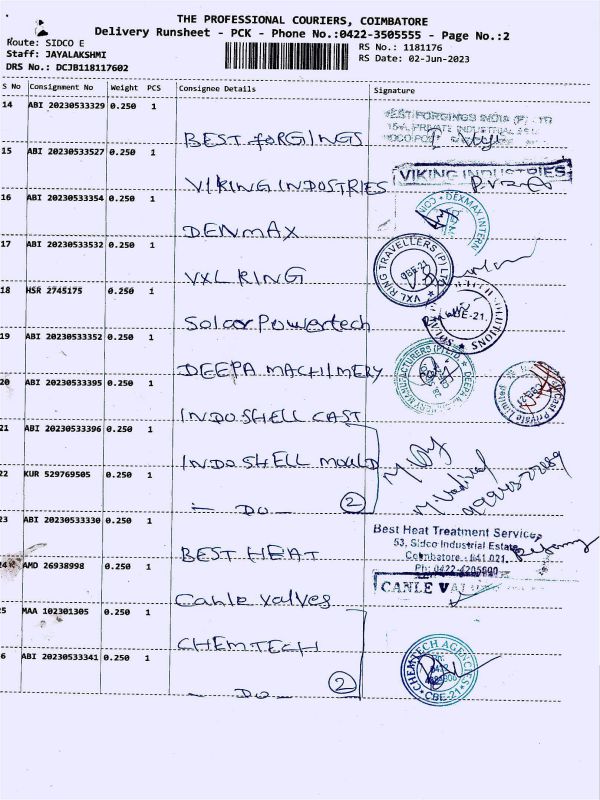 THE PROFESSIONAL COURIERS, COIMBATORE
Delivery Runsheet - PCK - Phone No.:0422-3505555 - Page No.:2
Route: SIDCO E
RS No.: 1181176
Staff: JAYALAKSHMI
RS Date: 02-Jun-2023
DRS No.: DCJB118117602
S No Consignment No Weight PCS Consignee Details Signature
14 ABI 20230533329 0.250 1
BEST FORGINGS
BEST FORGINGS INDIA (P)
15 ABI 20230533527 0.250 1
VIKING INDUSTRIES
VIKING INDUSTRIES
16 ABI 20230533354 0.250 1
DENMAX
DEXMAX INTERN
17 ABI 20230533532 0.250 1
VXL RING
VXL RING TRAVELLERS (P) LTD
CBE-21
18 HSR 2745175 0.250 1
Solar Powertech
CBE-21.
19 ABI 20230533352 0.250 1
DEEPA MACHIMERY
DEEPA MACHINERY MANUFACTURERS (P) LTD.
20 ABI 20230533395 0.250 1
INDOSHELL CAST
Cast Private Limited
21 ABI 20230533396 0.250 1
INDO SHELL MOULD
22 KUR 529769505 0.250 1
- DO - 2
23 ABI 20230533330 0.250 1
BEST HEAT
Best Heat Treatment Services
53, Sidco Industrial Estate,
Coimbatore - 641 021.
Ph: 0422-4205900
24 AMD 26938998 0.250 1
Canle valves
CANLE VA
25 MAA 102301305 0.250 1
CHEMTECH
26 ABI 20230533341 0.250 1
- DO - 2
CHEMTECH AGENCIES
CBE-21